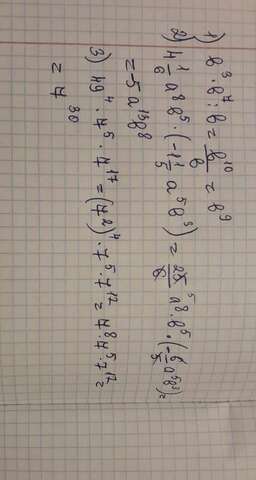 1) b³ · b⁷ : b = b¹⁰/b = b⁹
2) 4 1/6 a⁸b⁵ · (-1 1/5 a⁵b³) = 25/6 a⁸ · b⁵ · (-6/5 a⁵b³) =
= -5a¹³b⁸
3) 49⁴ · 7⁵ · 7¹⁷ = (7²)⁴ · 7⁵ · 7¹⁷ = 7⁸ · 7⁵ · 7¹⁷ =
= 7³⁰